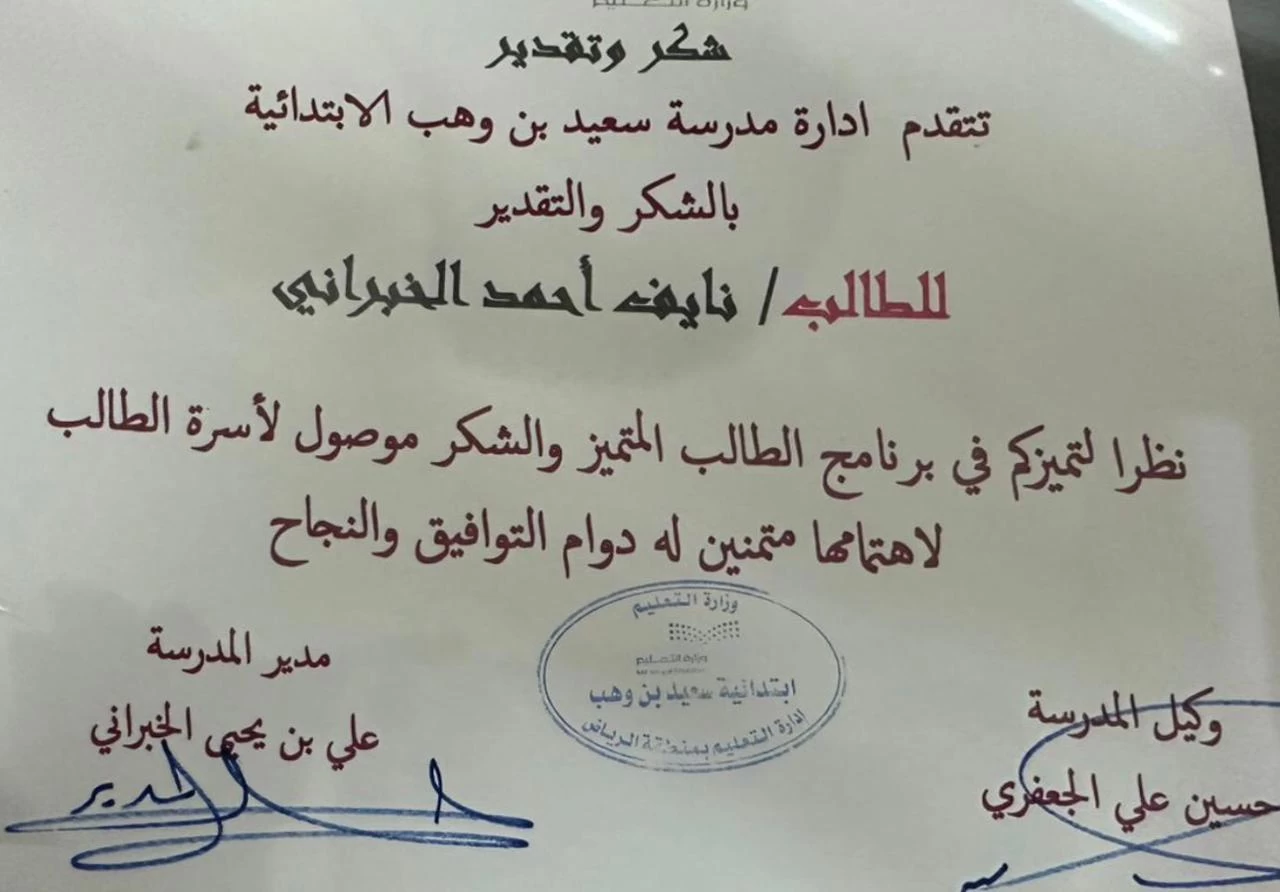 وزارة التعليم
شكر وتقدير
تتقدم ادارة مدرسة سعيد بن وهب الابتدائية
بالشكر والتقدير
للطالب / نايف أحمد الخبراني
نظرا لتميزكم في برنامج الطالب المتميز والشكر موصول لأسرة الطالب
لاهتمامها متمنين له دوام التوافيق والنجاح
وزارة التعليم
وزارة التعليم
ابتدائية سعيد بن وهب
ادارة التعليم بمنطقة الرياض
وكيل المدرسة
حسين علي الجعفري
مدير المدرسة
علي بن يحيى الخبراني